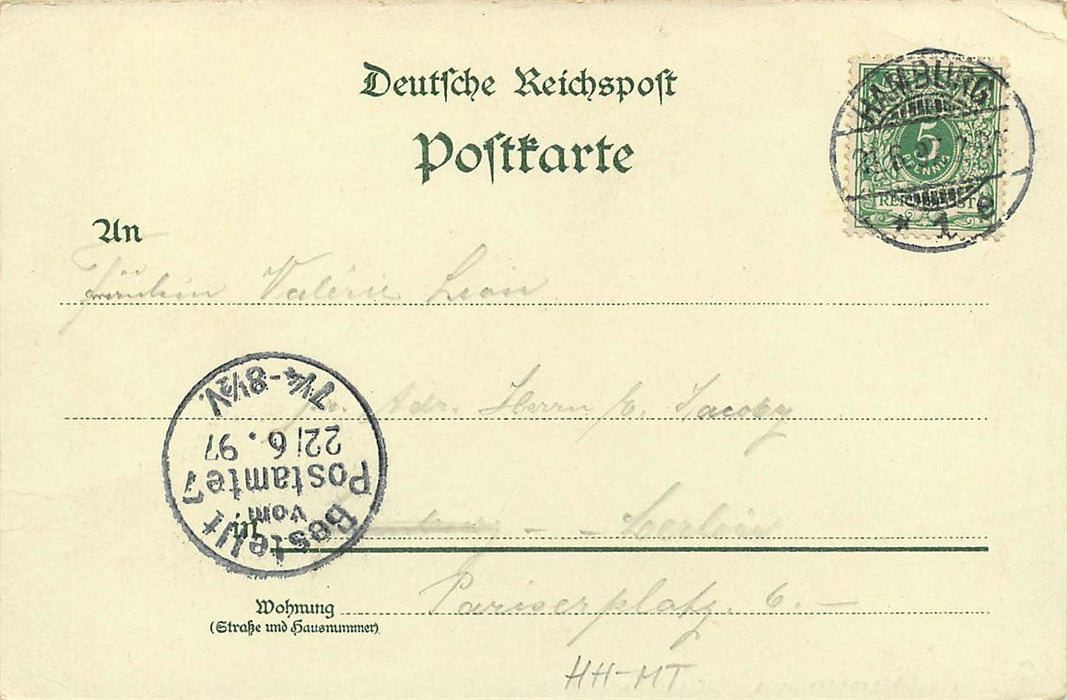 Deutsche Reichspost
Postkarte
HAMBURG
* 1 e
5
PFENNIG
REICHSPOST
An
Fräulein Valérie Leon
Adr. Herrn C. Jacoby
in - - Berlin
Wohnung Pariserplatz. 6. —
(Straße und Hausnummer)
Bestellt
vom
Postamte 7
22/6. 97
7¼-8½V.
HH-MT